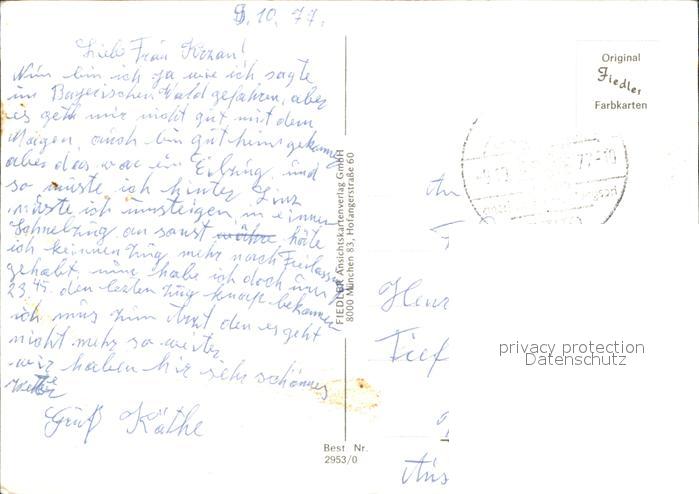 9.10.77.
Liebe Frau Kozan!
Nun bin ich ja wie ich sagte
im Bayerischen Wald gefahren, aber
es geht mir nicht gut mit dem
Magen, auch bin gut heimgekommen
aber das war ein Eilzug und
so müste ich hinter Linz
müste ich umsteigen, in einen
Schnelzug an sonst häte
ich keinnen Zug mehr nach Freilassing
gehabt, nun habe ich doch um
23 45. den lezten Zug knapp bekommen
ich mus zum Arzt den es geht
nicht mehr so weiter
wir haben hir sehr schönnes
Wetter
Gruß Käthe
FIEDLER Ansichtskartenverlag GmbH
8000 München 83, Hofangerstraße 60
Best. Nr.
2953/0
Original
Fiedler
Farbkarten
privacy protection
Datenschutz